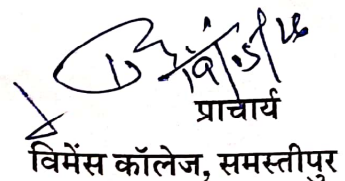 प्राचार्य
विमेंस कॉलेज, समस्तीपुर